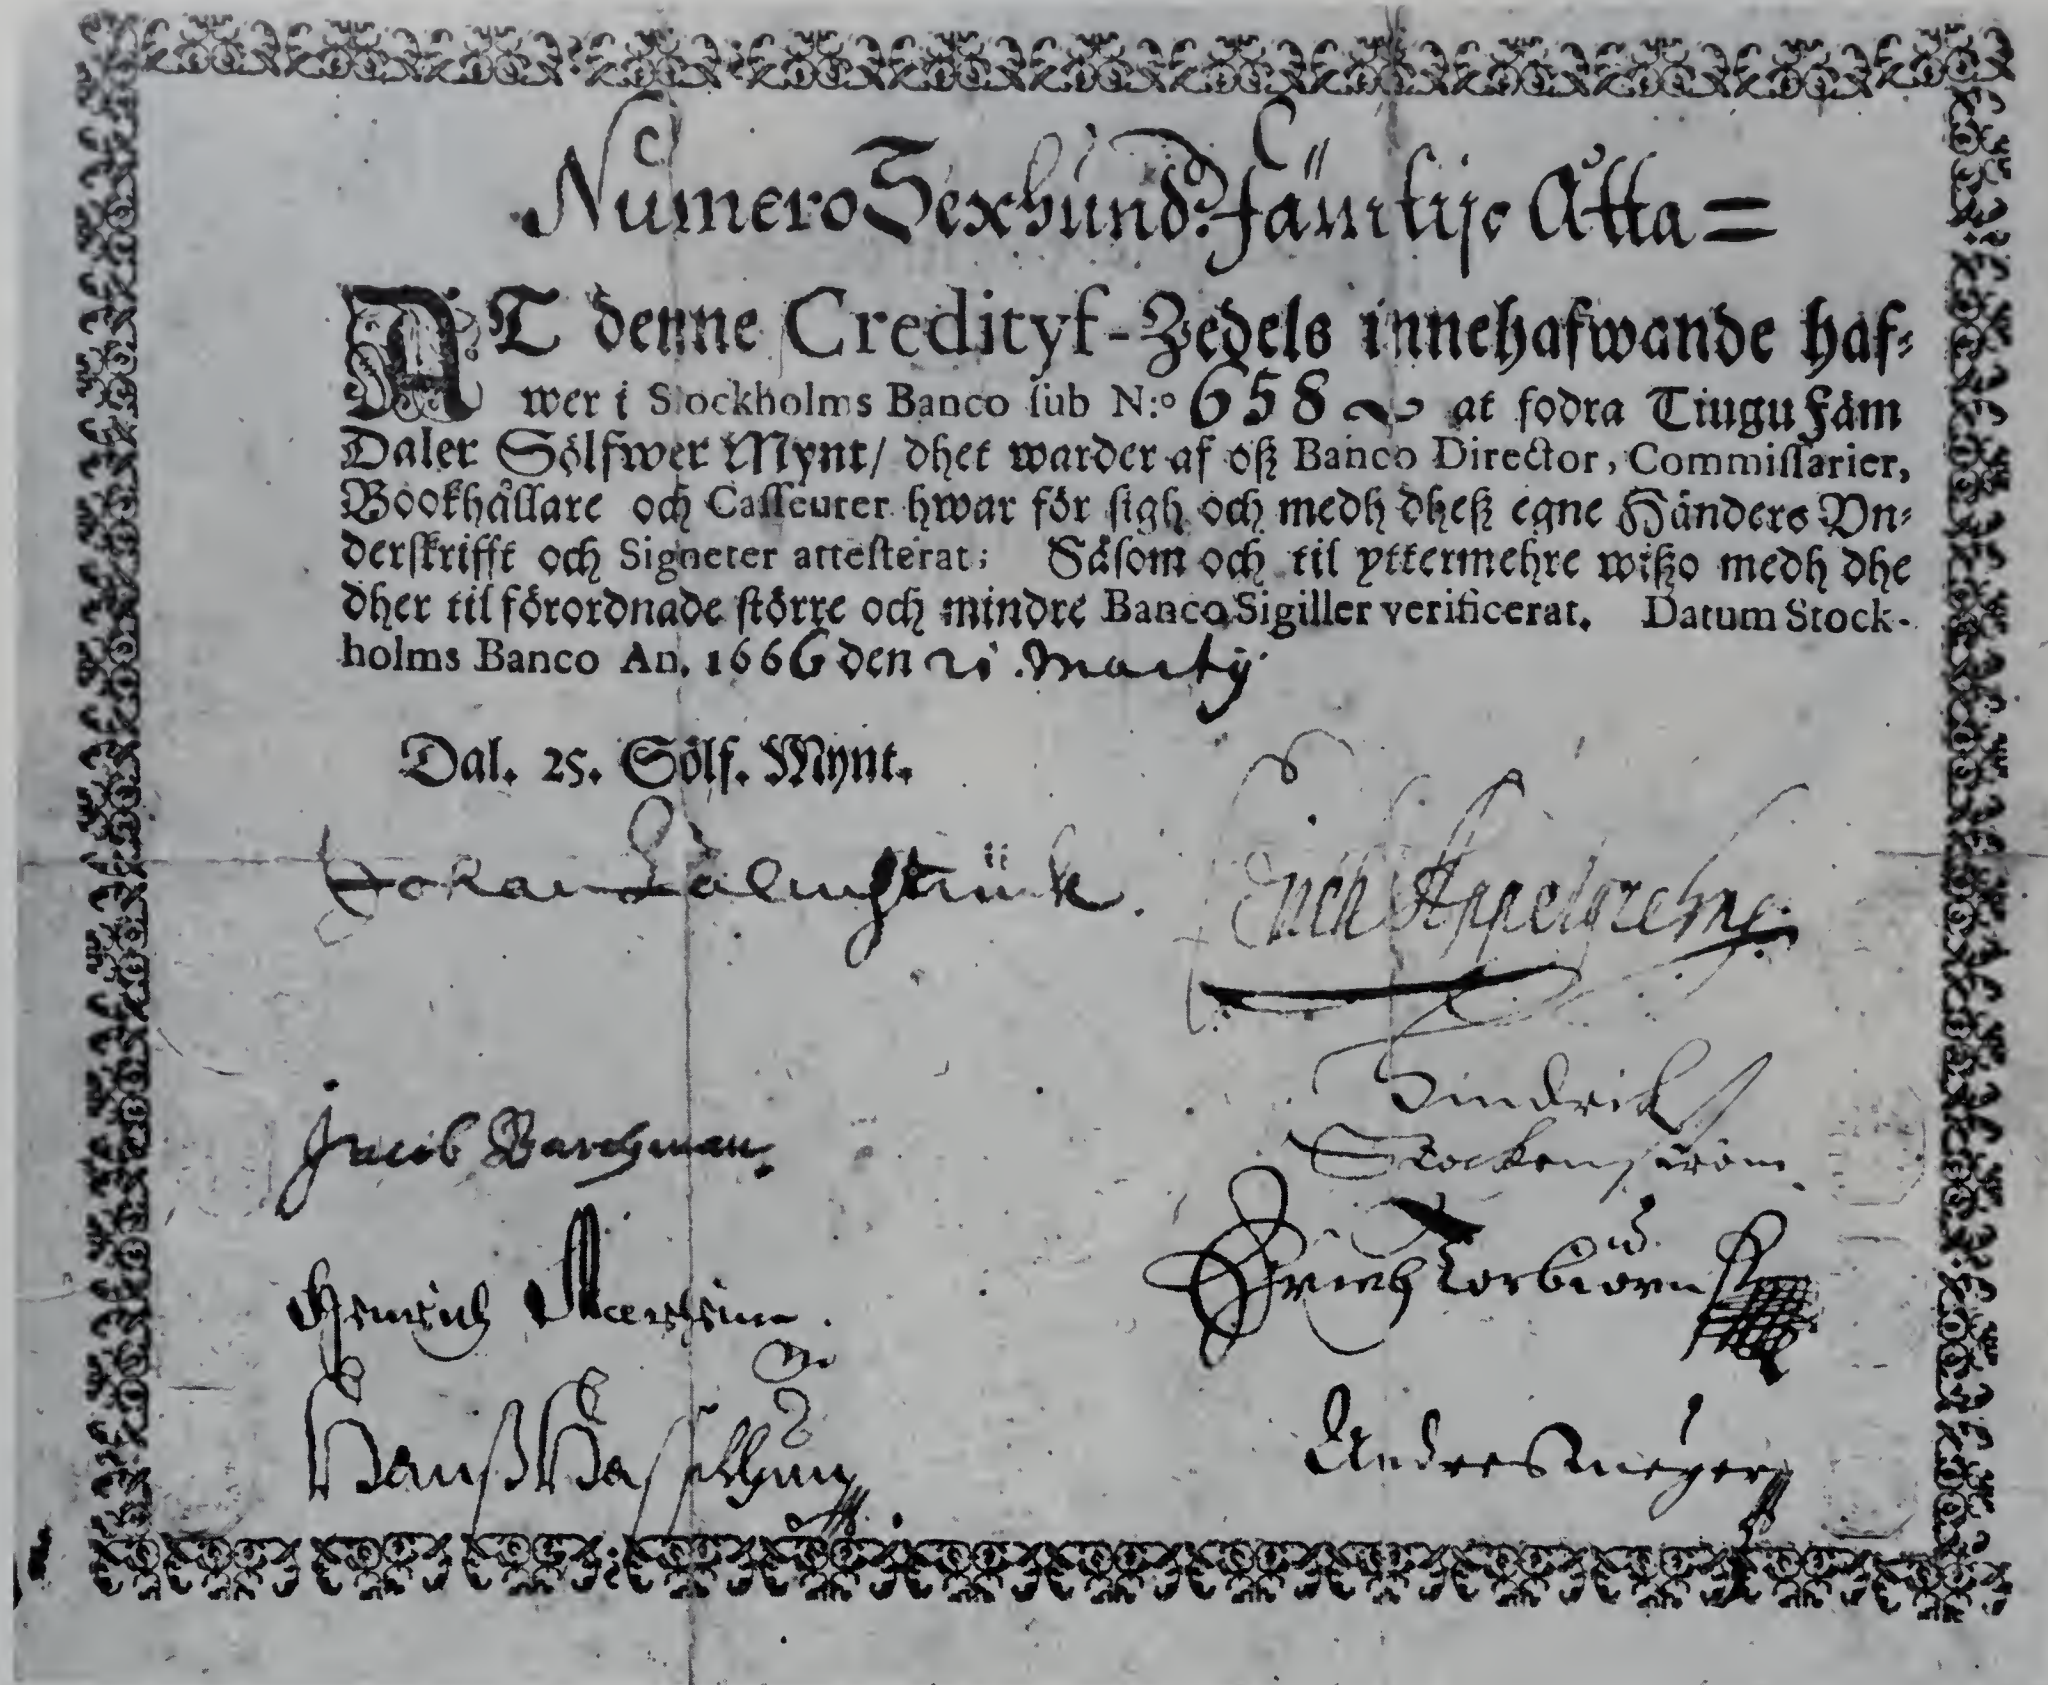 Numero Sexhund: Fämtije Åtta =
AT denne Credityf-Zedels innehafwande haf-
wer i Stockholms Banco sub N:o 658 at fodra Tiugu Fäm
Daler Sölfwer Mynt/ dhet warder af oß Banco Director, Commissarier,
Bookhållare och Casseurer hwar för sigh och medh dheß egne Händers Vn-
derskrifft och Signeter attesterat; Såsom och til yttermehre wißo medh dhe
dher til förordnade större och mindre Banco Sigiller verificerat. Datum Stock-
holms Banco An. 1666 den 21. Martij
Dal. 25. Sölf. Mynt.
Johan Palmstrück. Erich Appelgrehn
Jacob Barchman. Hindrik
Stockenström
Heinrich Erich Torbiörn
Hanß Andres Meyer